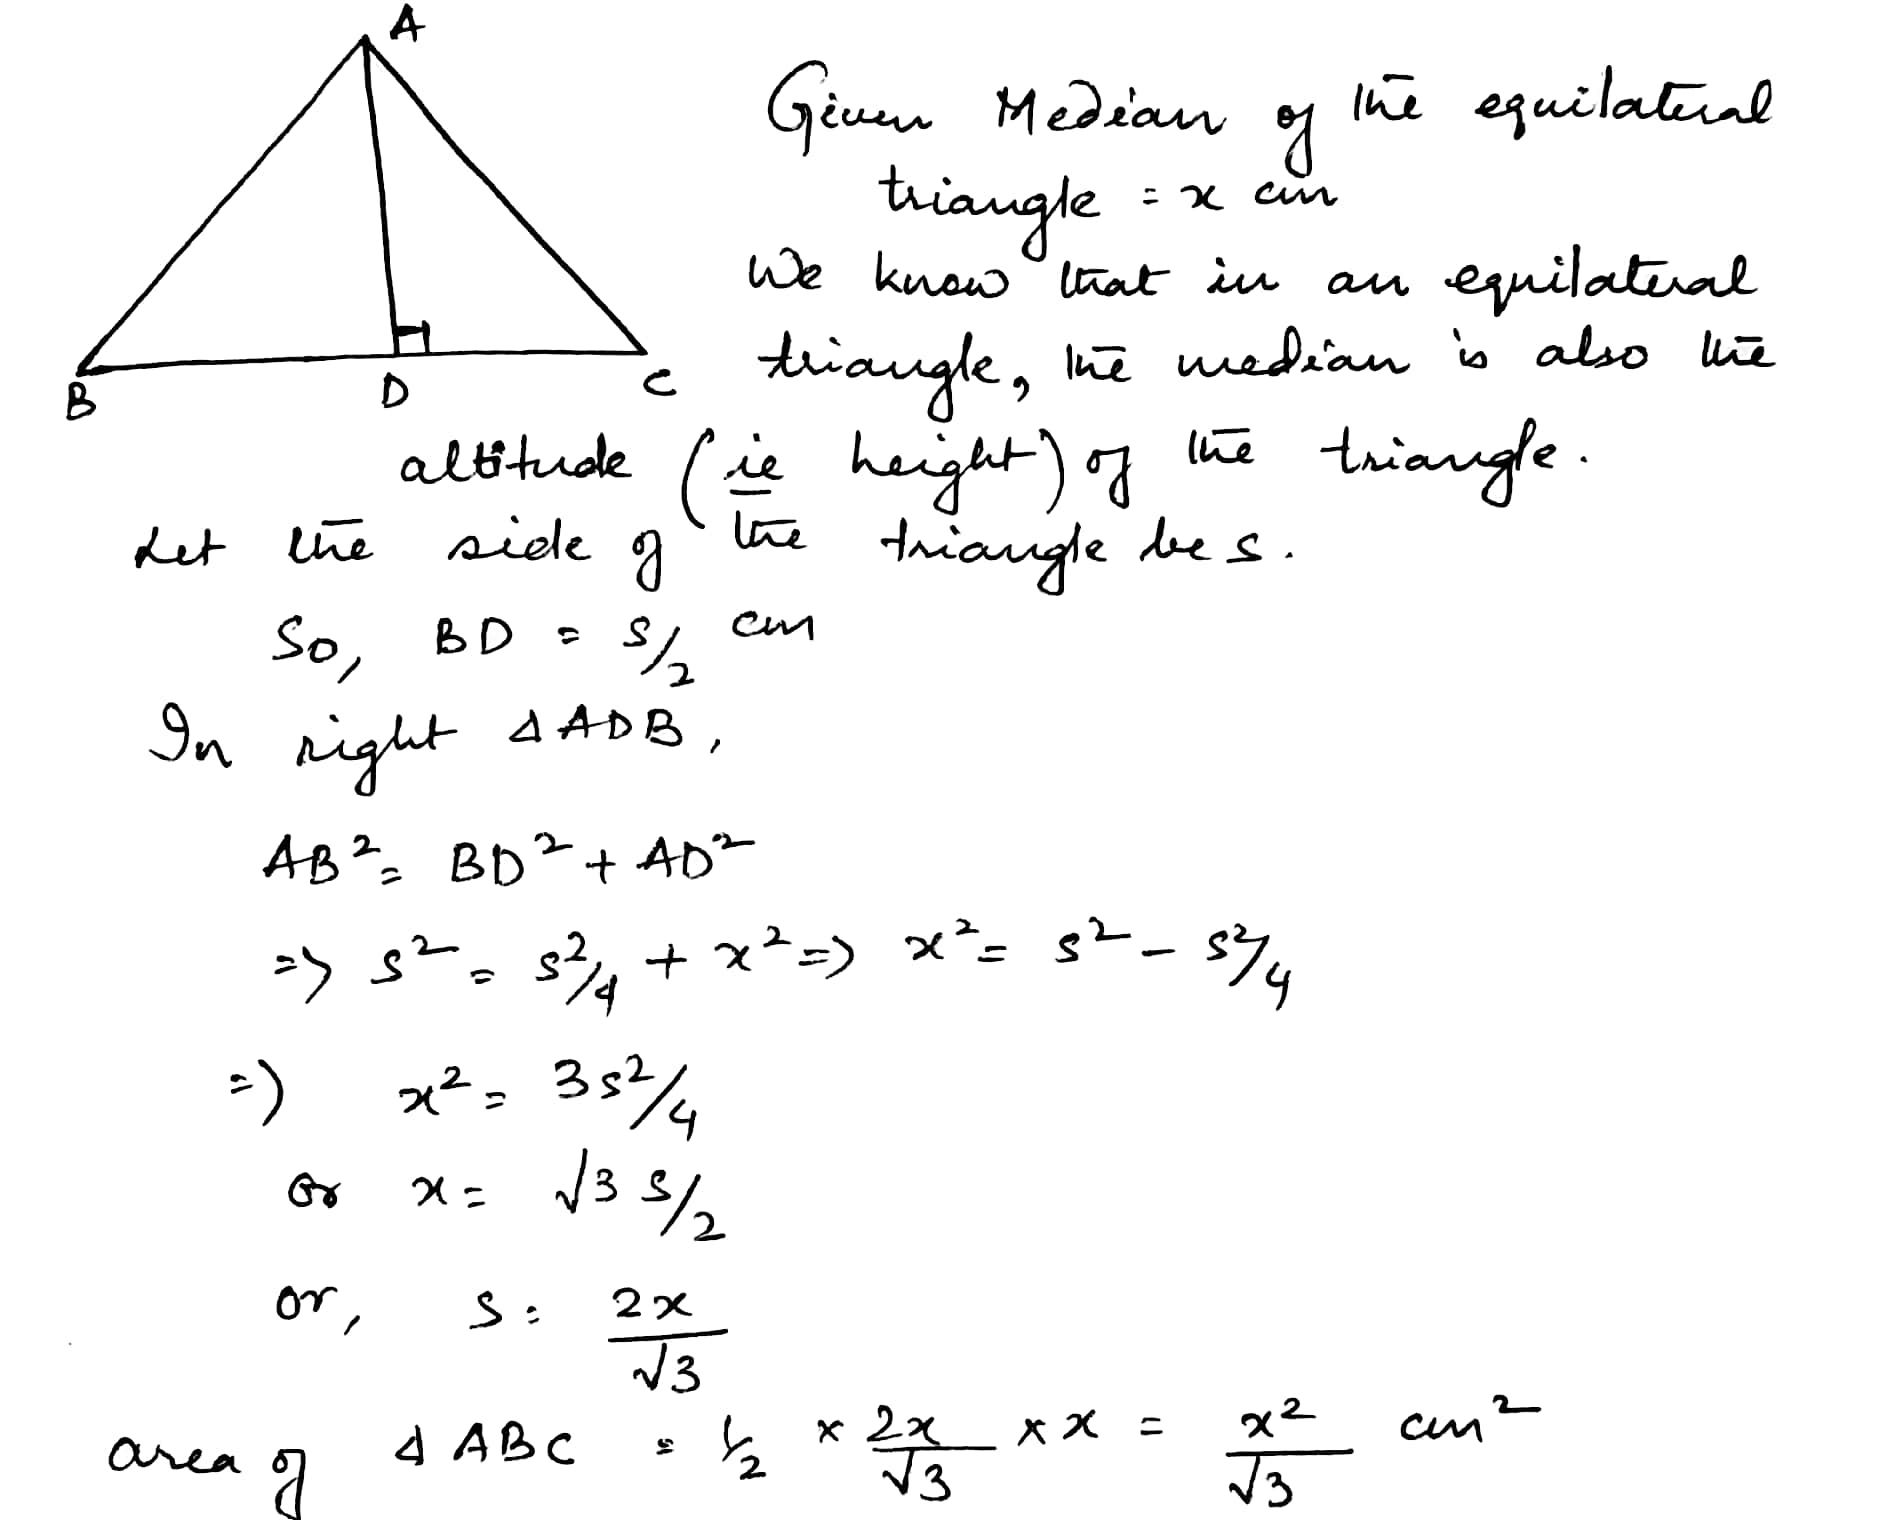 A
Given Median of the equilateral
triangle = x cm
We know that in an equilateral
triangle, the median is also the
B D C
altitude (ie height) of the triangle.
Let the side of the triangle be s.
So, BD = s/2 cm
In right △ADB,
AB² = BD² + AD²
=> s² = s²/4 + x² => x² = s² - s²/4
=> x² = 3s²/4
or x = √3 s/2
or, s = 2x/√3
area of △ABC = 1/2 × 2x/√3 × x = x²/√3 cm²